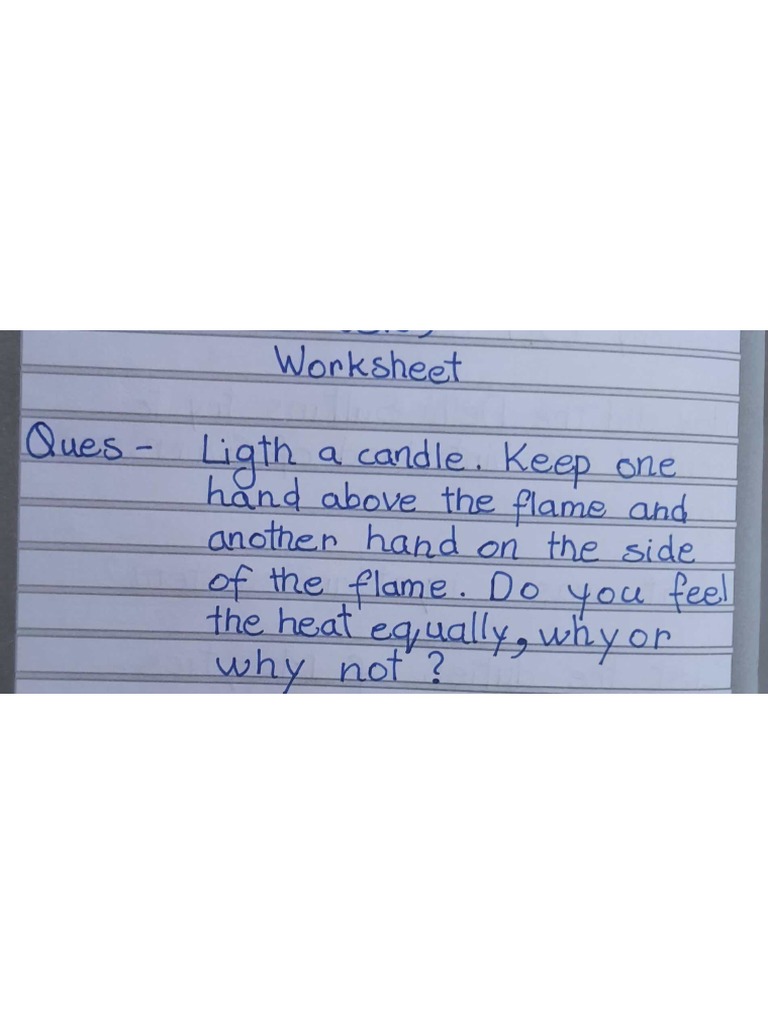 Worksheet
Ques - Ligth a candle. Keep one
hand above the flame and
another hand on the side
of the flame. Do you feel
the heat equally, why or
why not ?